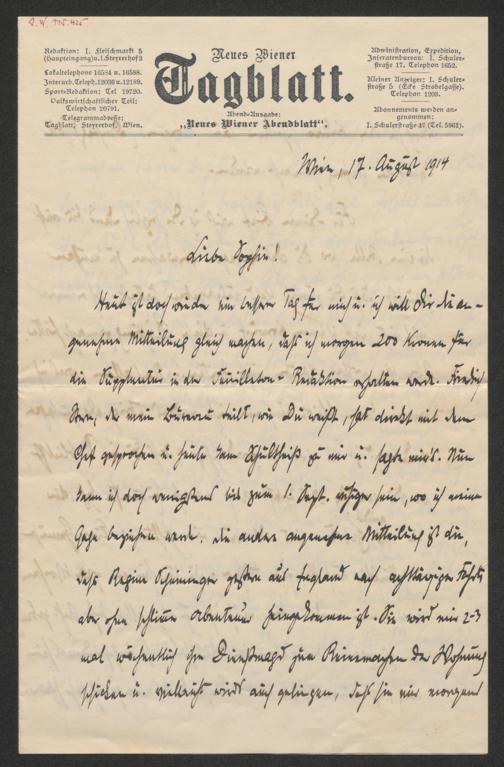 Redaktion: I. Fleischmarkt 5
(Haupteingang) u. I. Steyrerhof 3
Lokaltelephone 16584 u. 16588.
Interurb. Teleph. 12036 u. 12189.
Sport-Redaktion: Tel 19720.
Volkswirtschaftlicher Teil:
Telephon 20791.
Telegrammadresse:
Tagblatt, Steyrerhof, Wien.
Neues Wiener
Tagblatt.
Abend-Ausgabe:
„Neues Wiener Abendblatt“.
Administration, Expedition,
Inseratenbureau: I. Schuler-
straße 17. Telephon 1652.
Kleiner Anzeiger: I. Schuler-
straße 5 (Ecke Strobelgasse).
Telephon 1203.
Abonnements werden an-
genommen:
I. Schulerstraße 17 (Tel. 5961).
Wien, 17. August 1914
Liebe Sophie!
Heute ist doch wieder ein besserer Tag für mich u. ich will Dir die an-
genehme Mitteilung gleich machen, daß ich morgen 200 Kronen für
die Supplentur in der Feuilleton-Redaktion erhalten werde. Friedrich
der mein Bureau teilt, wie Du weißt, hat direkt mit dem
Chef gesprochen u. heute kam Schultheiß zu mir u. sagte mir's. Nun
kann ich doch wenigstens bis zum 1. Sept. ruhiger sein, wo ich meine
Gage beziehen werde. Die andere angenehme Mitteilung ist die,
daß Regine gestern aus England nach achttägiger Fahrt
aber ohne schlimme Abenteuer heimgekommen ist. Sie wird mir 2-3
mal wöchentlich ihre Dienstmagd zum Reinemachen der Wohnung
schicken u. vielleicht wird's auch gelingen, daß sie mir morgens